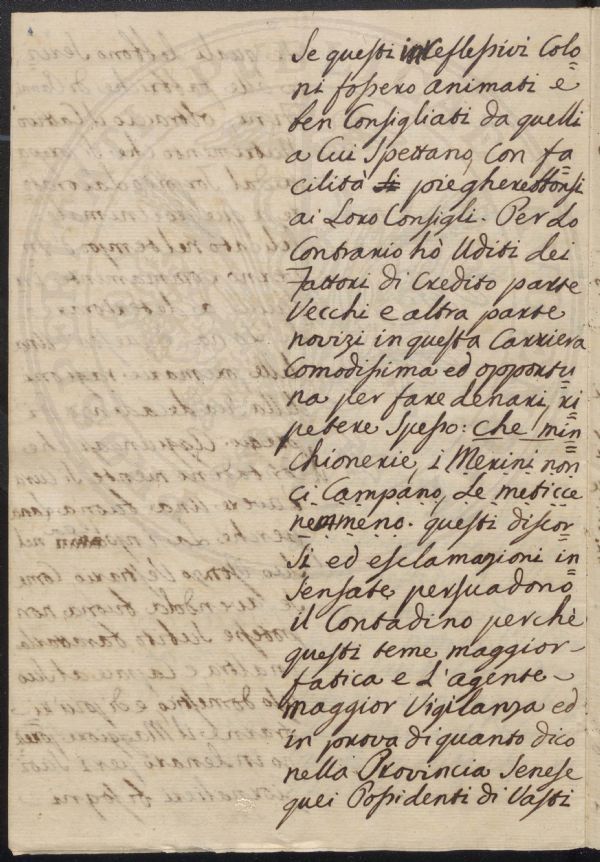 Se questi irreflessivi Colo=
ni fossero animati e
ben Consigliati da quelli
a Cui Spettano, Con fa=
cilità piegherebbonsi
ai Loro Consigli. Per Lo
Contrario hò Uditi dei
Fattori di Credito parte
Vecchi e altra parte
novizi in questa Carriera
Comodissima ed opportu=
na per fare denari, ri=
petere Spesso: che min=
chionerie, i Merini non
ci Campano, Le meticce
nemmeno. questi discor=
si ed esclamazioni in=
sensate, persuadono
il Contadino perchè
questi teme maggior
fatica e L'agente
maggior Vigilanza ed
in prova di quanto dico
nella Provincia Senese
quei Possidenti di Vasti